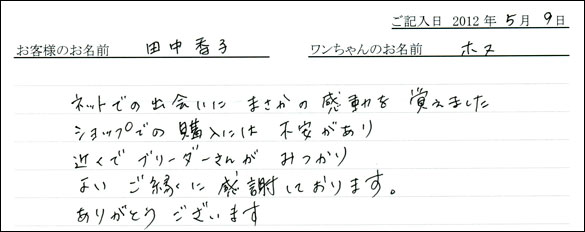 ご記入日 2012年5月9日
お客様のお名前 田中香子 ワンちゃんのお名前 ホス
ネットでの出会いに まさかの感動を 覚えました
ショップでの購入には 不安があり
近くで ブリーダーさんが みつかり
よい ご縁に感謝しております。
ありがとう ございます